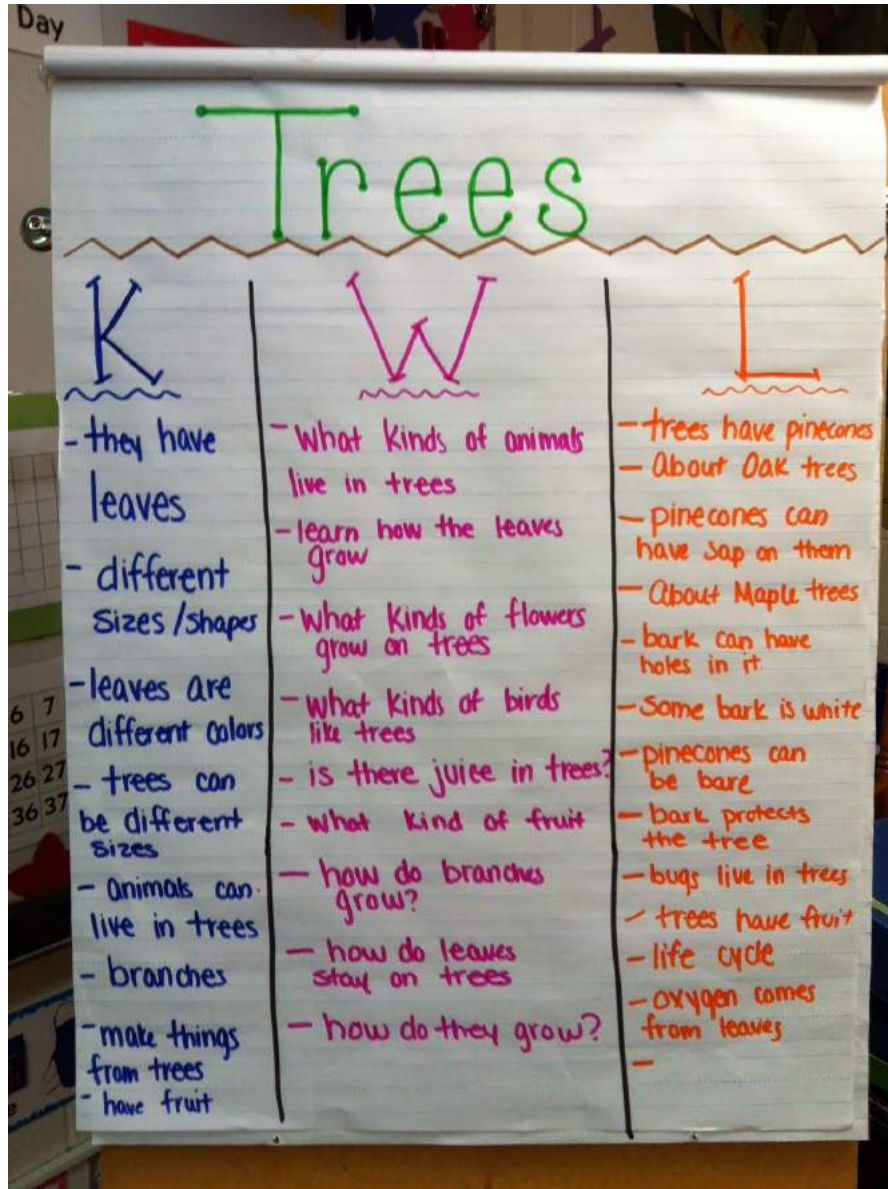 Day
Trees
K
- they have
leaves
- different
sizes/shapes
- leaves are
different colors
- trees can
be different
sizes
- animals can
live in trees
- branches
- make things
from trees
- have fruit
W
- What kinds of animals
live in trees
- learn how the leaves
grow
- what kinds of flowers
grow on trees
- what kinds of birds
like trees
- is there juice in trees?
- what kind of fruit
- how do branches
grow?
- how do leaves
stay on trees
- how do they grow?
L
- trees have pinecones
- About Oak trees
- pinecones can
have sap on them
- About Maple trees
- bark can have
holes in it
- Some bark is white
- pinecones can
be bare
- bark protects
the tree
- bugs live in trees
- trees have fruit
- life cycle
- oxygen comes
from leaves
-
6 7
16 17
26 27
36 37